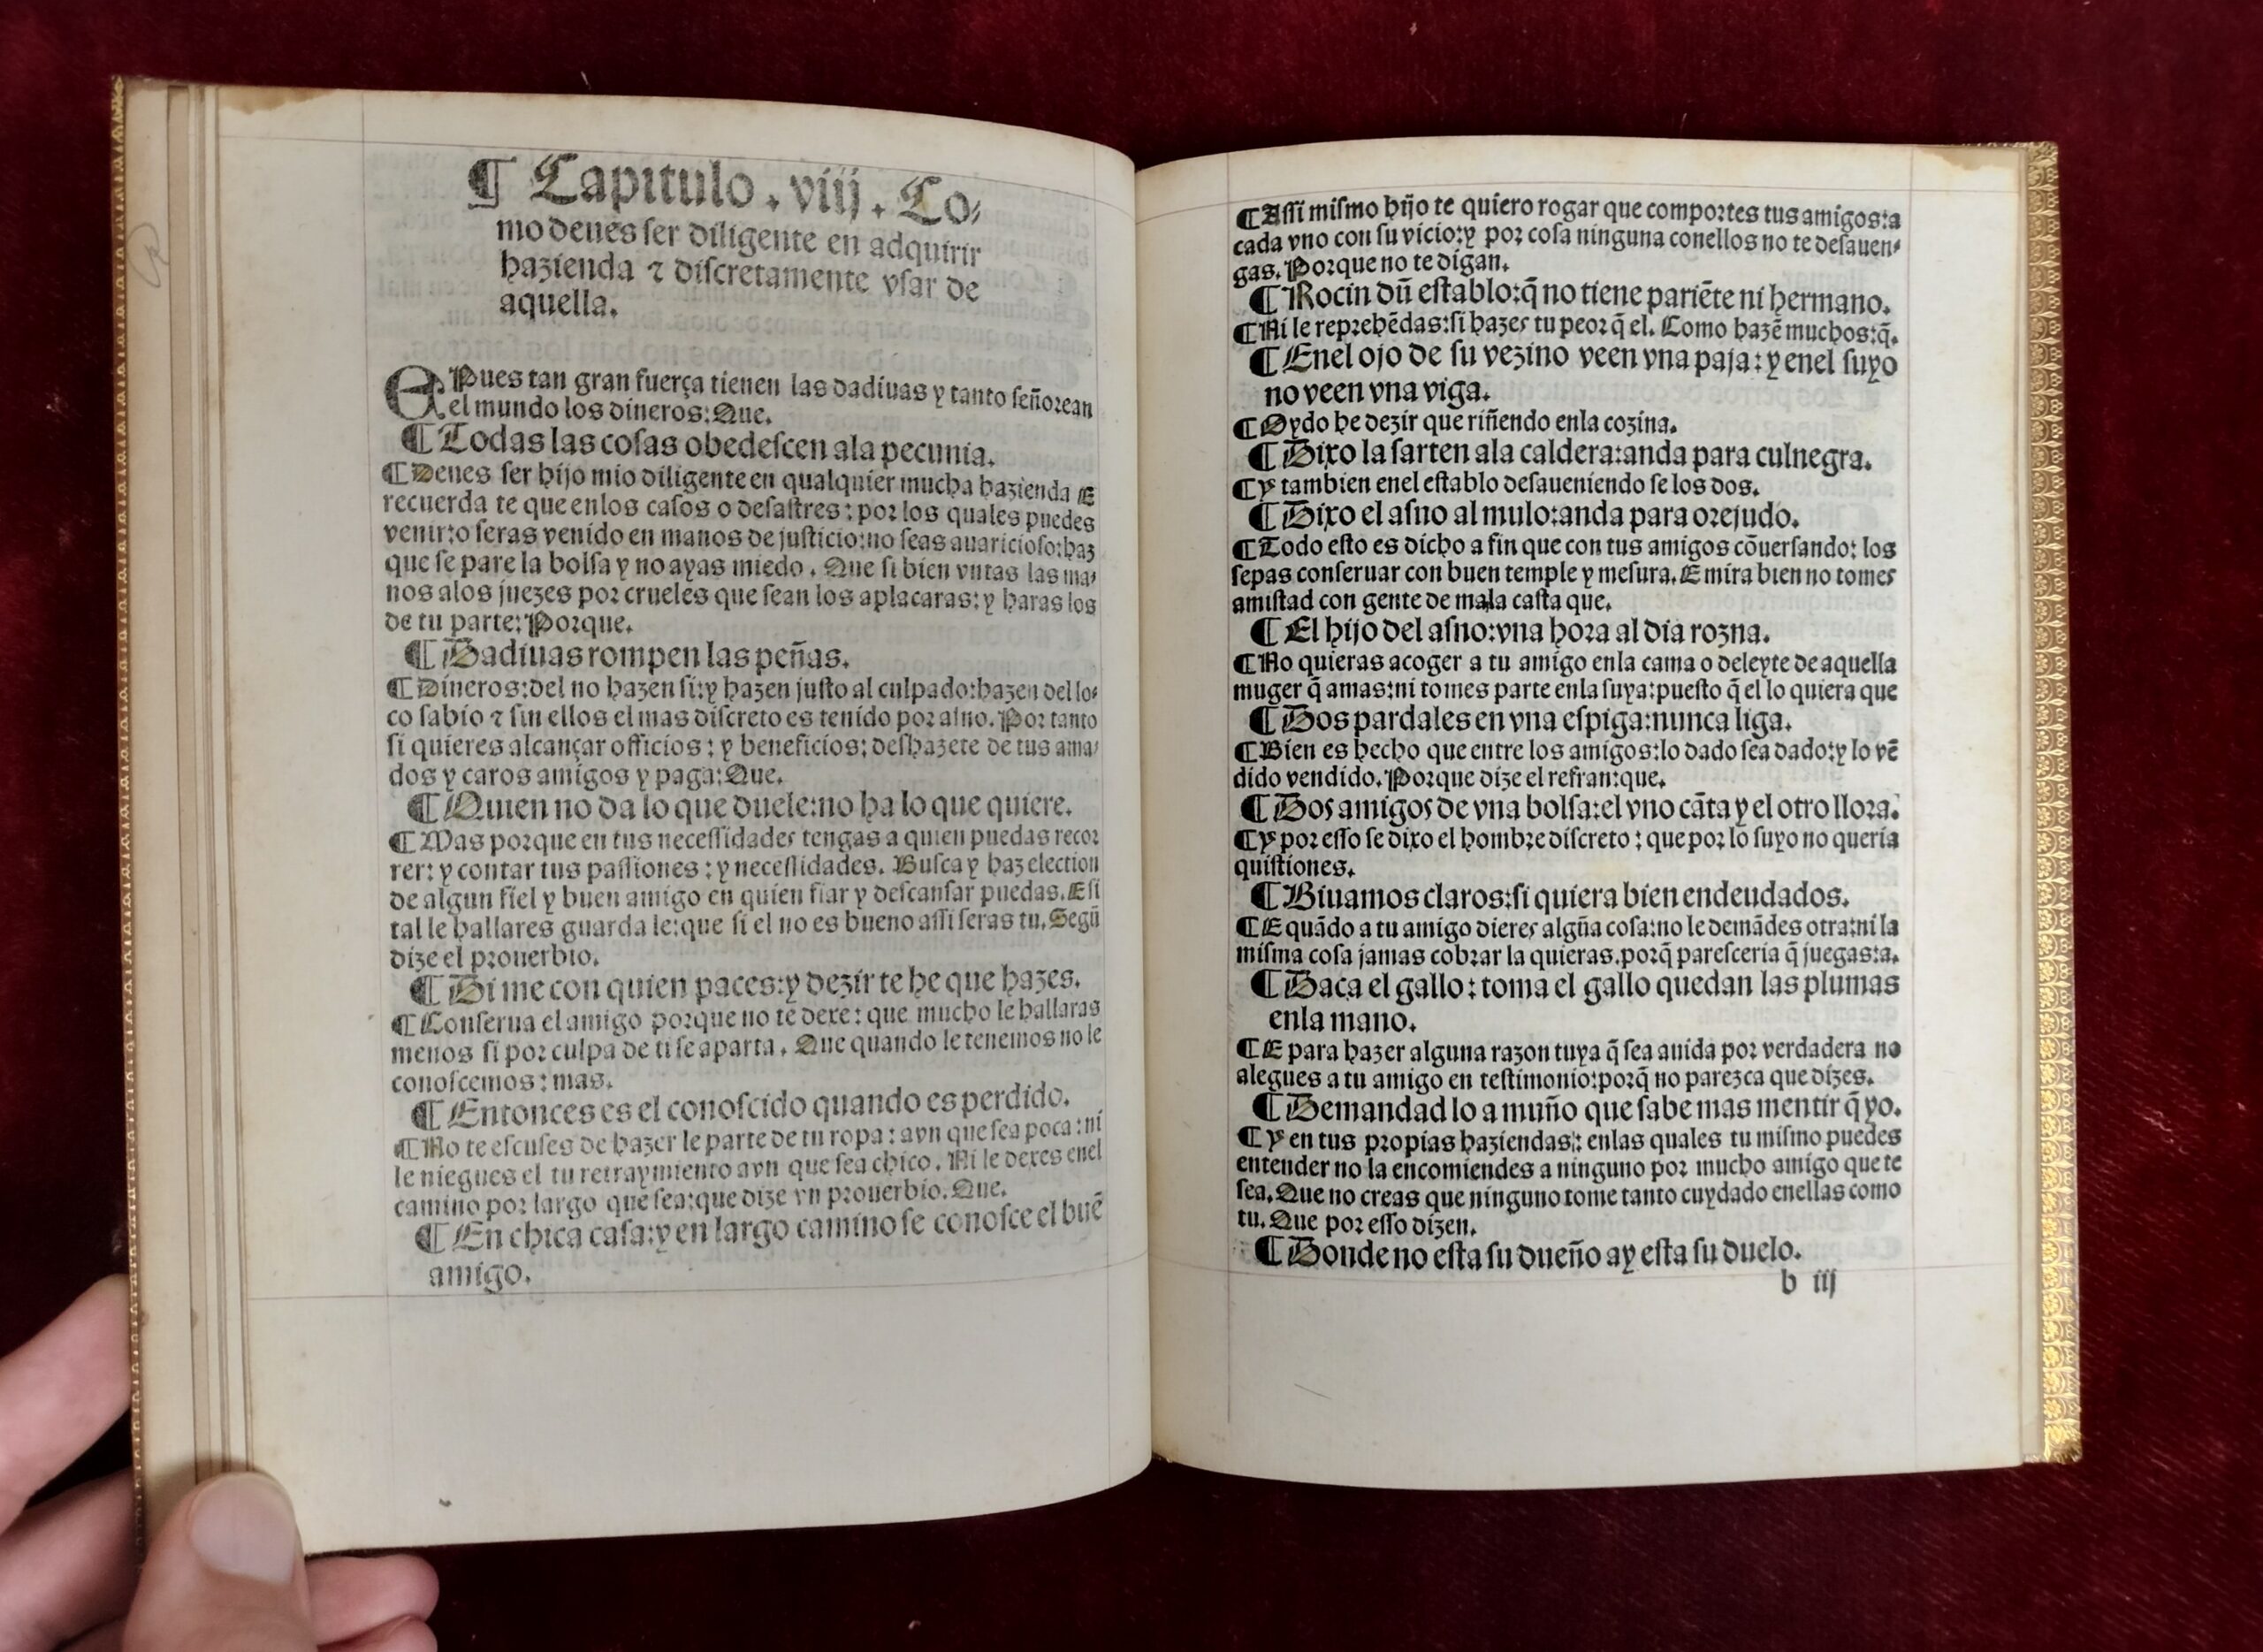 ¶ Capitulo .viij. Co⸗
mo deues ser diligente en adquirir
hazienda ⁊ discretamente vsar de
aquella.
EPues tan gran fuerça tienen las dadiuas y tanto señorean
el mundo los dineros: Que.
¶ Todas las cosas obedescen ala pecunia.
¶ Deues ser hijo mio diligente en qualquier mucha hazienda E
recuerda te que enlos casos o desastres: por los quales puedes
venir: o seras venido en manos de justicio: no seas auaricioso: haz
que se pare la bolsa y no ayas miedo. Que si bien vntas las ma⸗
nos alos juezes por crueles que sean los aplacaras: y haras los
de tu parte: Porque.
¶ Dadiuas rompen las peñas.
¶ Dineros: del no hazen si: y hazen justo al culpado: hazen del lo⸗
co sabio ⁊ sin ellos el mas discreto es tenido por asno. Por tanto
si quieres alcançar officios: y beneficios: deshazete de tus ama⸗
dos y caros amigos y paga: Que.
¶ Quien no da lo que duele: no ha lo que quiere.
¶ Mas porque en tus necessidades tengas a quien puedas recor
rer: y contar tus passiones: y necessidades. Busca y haz election
de algun fiel y buen amigo en quien fiar y descansar puedas. E si
tal le hallares guarda le: que si el no es bueno assi seras tu. Segũ
dize el prouerbio.
¶ Di me con quien paces: y dezir te he que hazes.
¶ Conserua el amigo porque no te dexe: que mucho le hallaras
menos si por culpa de ti se aparta. Que quando le tenemos no le
conoscemos: mas.
¶ Entonces es el conoscido quando es perdido.
¶ No te escuses de hazer le parte de tu ropa: avn que sea poca: ni
le niegues el tu retraymiento avn que sea chico. Ni le dexes enel
camino por largo que sea: que dize vn prouerbio. Que.
¶ En chica casa: y en largo camino se conosce el buẽ
amigo.
¶ Assi mismo hijo te quiero rogar que comportes tus amigos: a
cada vno con su vicio: y por cosa ninguna conellos no te desauen⸗
gas. Porque no te digan.
¶ Rocin dũ establo: q̃ no tiene pariẽte ni hermano.
¶ Ni le reprehẽdas: si hazes tu peor q̃ el. Como hazẽ muchos: q̃.
¶ Enel ojo de su vezino veen vna paja: y enel suyo
no veen vna viga.
¶ Oydo he dezir que riñendo enla cozina.
¶ Dixo la sarten ala caldera: anda para culnegra.
¶ Y tambien enel establo desaueniendo se los dos.
¶ Dixo el asno al mulo: anda para orejudo.
¶ Todo esto es dicho a fin que con tus amigos cõuersando: los
sepas conseruar con buen temple y mesura. E mira bien no tomes
amistad con gente de mala casta que.
¶ El hijo del asno: vna hora al dia rozna.
¶ No quieras acoger a tu amigo enla cama o deleyte de aquella
muger q̃ amas: ni tomes parte enla suya: puesto q̃ el lo quiera que
¶ Dos pardales en vna espiga: nunca liga.
¶ Bien es hecho que entre los amigos: lo dado sea dado: y lo vẽ
dido vendido. Porque dize el refran: que.
¶ Dos amigos de vna bolsa: el vno cãta y el otro llora.
¶ Y por esso se dixo el hombre discreto: que por lo suyo no queria
quistiones.
¶ Biuamos claros: si quiera bien endeudados.
¶ E quãdo a tu amigo dieres algũa cosa: no le demãdes otra: ni la
misma cosa jamas cobrar la quieras. porq̃ paresceria q̃ juegas: a.
¶ Daca el gallo: toma el gallo quedan las plumas
enla mano.
¶ E para hazer alguna razon tuya q̃ sea auida por verdadera no
alegues a tu amigo en testimonio: porq̃ no parezca que dizes.
¶ Demandad lo a muño que sabe mas mentir q̃ yo.
¶ Y en tus propias haziendas: enlas quales tu mismo puedes
entender no la encomiendes a ninguno por mucho amigo que te
sea. Que no creas que ninguno tome tanto cuydado enellas como
tu. Que por esso dizen.
¶ Donde no esta su dueño ay esta su duelo.
b iij